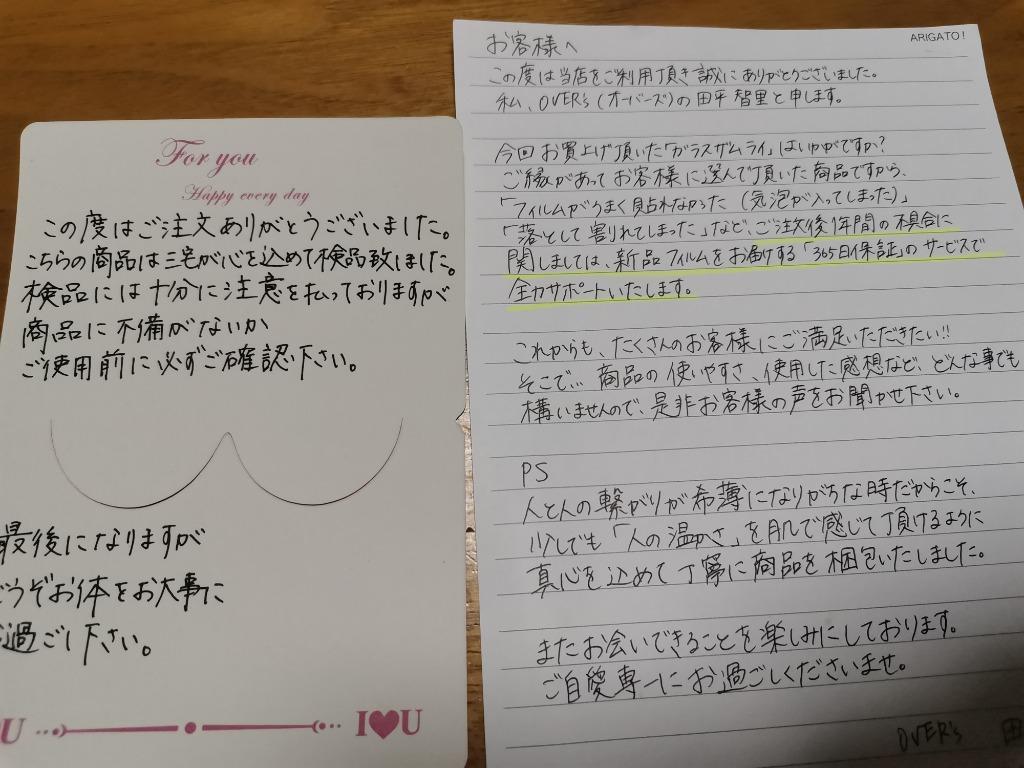 For you
Happy every day
この度はご注文ありがとうございました。
こちらの商品は三宅が心を込めて検品致しました。
検品には十分に注意を払っておりますが
商品に不備がないか
ご使用前に必ずご確認下さい。
最後になりますが
どうぞお体をお大事に
過ごし下さい。
U
I♥U
ARIGATO!
お客様へ
この度は当店をご利用頂き誠にありがとうございました。
私、OVER's(オーバーズ)の田平智里と申します。
今回お買上げ頂いた「ガラスザムライ」はいかがですか?
ご縁があってお客様に選んで頂いた商品ですから、
「フィルムがうまく貼れなかった(気泡が入ってしまった)」
「落として割れてしまった」など、ご注文後1年間の不具合に
関しましては、新品フィルムをお届けする「365日保証」のサービスで
全力サポートいたします。
これからも、たくさんのお客様にご満足いただきたい!!
そこで…商品の使いやすさ、使用した感想など、どんな事でも
構いませんので、是非お客様の声をお聞かせ下さい。
PS
人と人の繋がりが希薄になりがちな時だからこそ、
少しでも「人の温かさ」を肌で感じて頂けるように
真心を込めて丁寧に商品を梱包いたしました。
またお会いできることを楽しみにしております。
ご自愛専一にお過ごしくださいませ。
OVER's 田